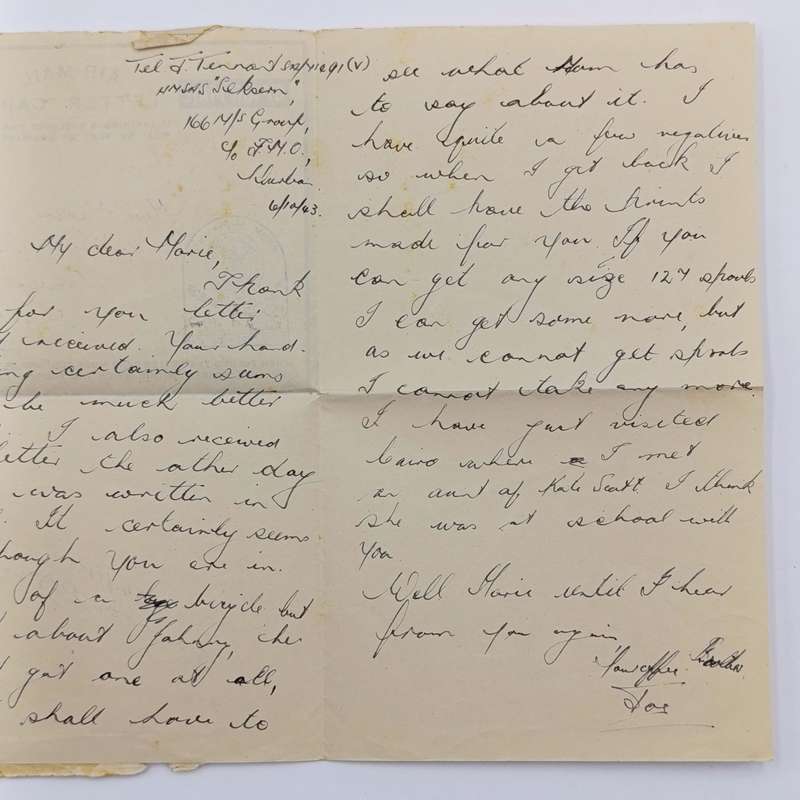 Tel J. Tennant
HMSAS "Seksern",
166 M/S Group,
c/o F.M.O.,
Durban.
6/10/43.
My dear Marie,
Thank
for you letter
received. Your hand-
ng certainly sums
be much better
I also received
letter the other day
was written in
It certainly seems
hough you are in.
of a bicycle but
about Johnny, he
got one at all,
shall have to
see what Mum has
to say about it. I
have quite a few negatives
so when I get back I
shall have the prints
made for you. If you
can get any size 127 spools
I can get some more, but
as we cannot get spools
I cannot take any more.
I have just visited
Cairo where I met
an aunt of Kate Scott. I think
she was at school with
you.
Well Marie until I hear
from you again,
Your affec. Brother
Joe